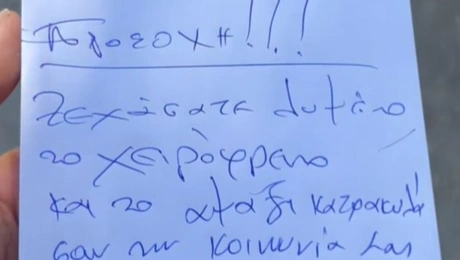 Προσοχή!!!
Ξεχάσατε λυμένο
το χειρόφρενο
και το αμάξι κατρακυλά
σαν την κοινωνία μας